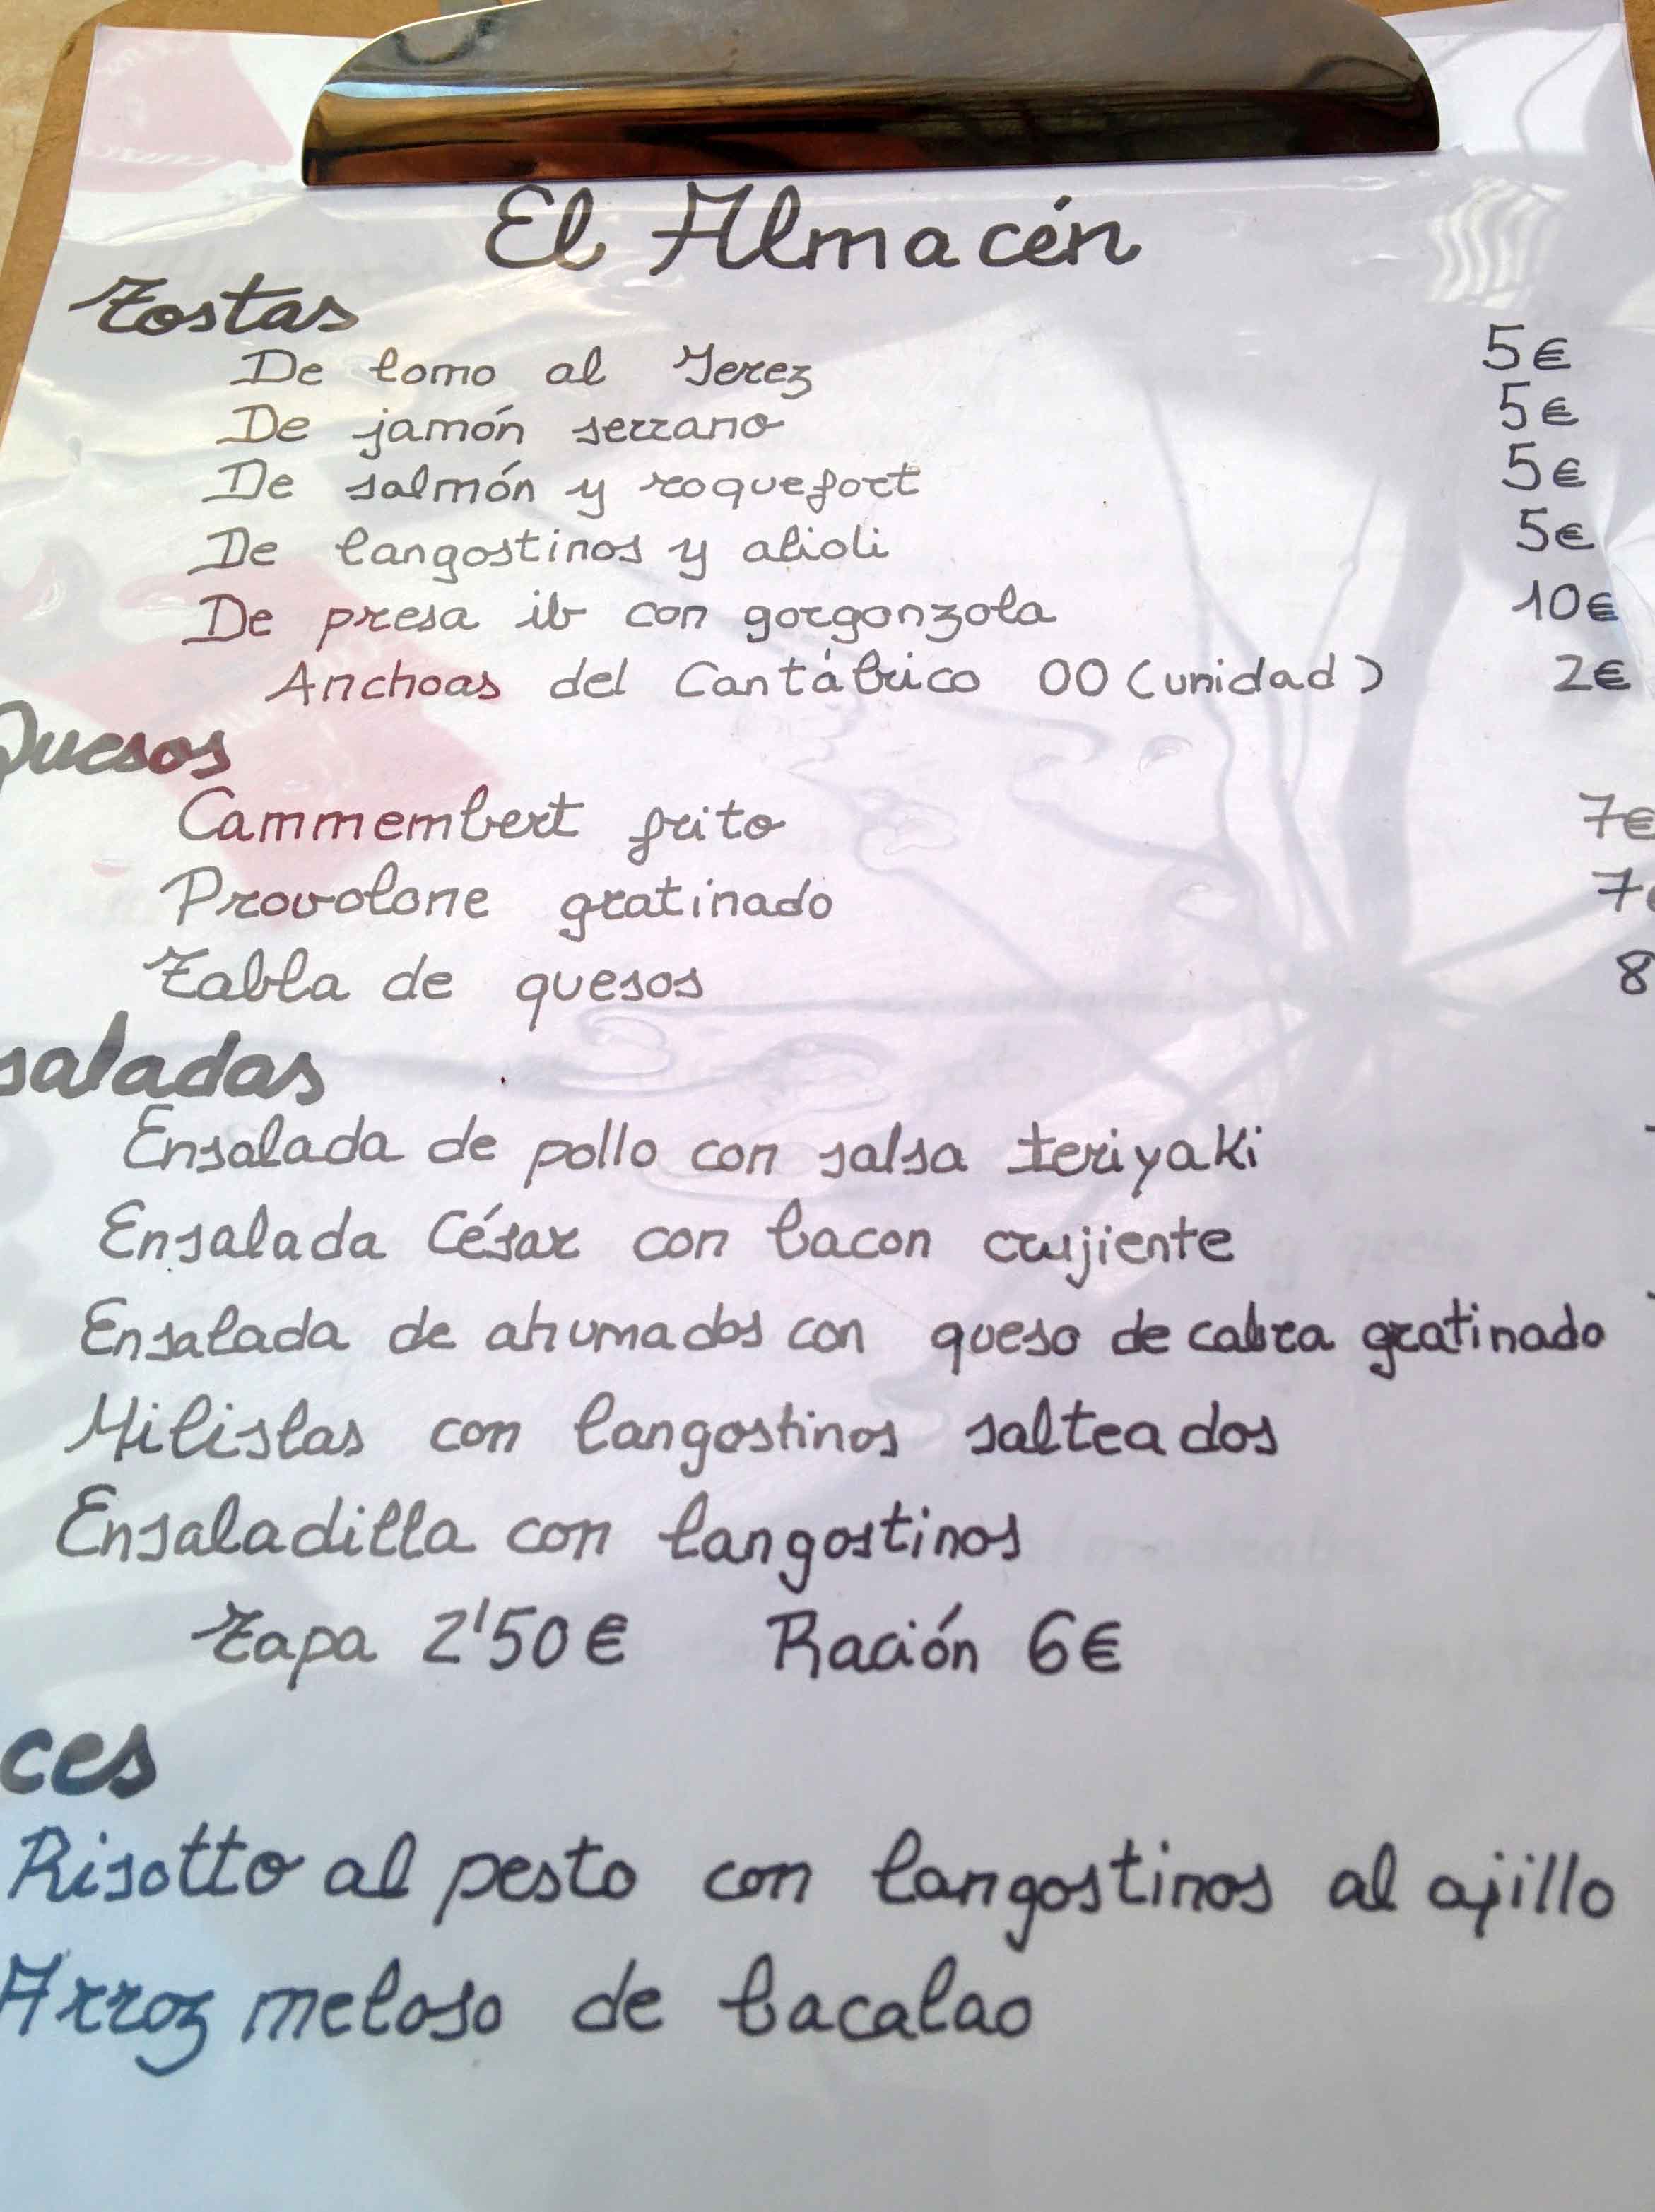 El Almacén
Tostas
De lomo al Jerez 5€
De jamón serrano 5€
De salmón y roquefort 5€
De langostinos y alioli 5€
De presa ib con gorgonzola 10€
Anchoas del Cantábrico 00 (unidad) 2€
Quesos
Cammembert frito 7€
Provolone gratinado 7€
Tabla de quesos 8
saladas
Ensalada de pollo con salsa teriyaki
Ensalada César con bacon crujiente
Ensalada de ahumados con queso de cabra gratinado
Milislas con langostinos salteados
Ensaladilla con langostinos
Tapa 2'50€ Ración 6€
ces
Risotto al pesto con langostinos al ajillo
Arroz meloso de bacalao